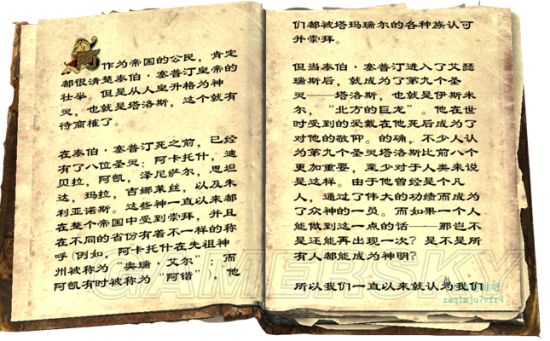 作为帝国的公民，肯定
都很清楚泰伯·塞普汀皇帝的
壮举。但是从人皇升格为神
灵，也就是塔洛斯，这个就有
待商榷了。
在泰伯·塞普汀死之前，已经
有了八位圣灵：阿卡托什，迪
贝拉，阿凯，泽尼萨尔，思坦
达，玛拉，吉娜莱丝，以及朱
利亚诺斯。这些神一直以来都
在整个帝国中受到崇拜，并且
在不同的省份有着不一样的称
呼（例如，阿卡托什在先祖神
州被称为“奥瑞·艾尔”；而
阿凯有时被称为“阿错”），他
们都被塔玛瑞尔的各种族认可
并崇拜。
但当泰伯·塞普汀进入了艾瑟
瑞斯后，就成为了第九个圣
灵——塔洛斯，也就是伊斯米
尔，“北方的巨龙”。他在世
时受到的爱戴在他死后成为了
对他的敬仰。的确，不少人认
为第九个圣灵塔洛斯比前八个
更加重要，至少对于人类来说
是这样。由于他曾经是个凡
人，通过了伟大的功绩而成为
了众神的一员。而如果一个人
能做到这一点的话——那岂不
是还能再出现一次？是不是所
有人都能成为神明？
所以我们一直以来就认为我们
GAMERSKY